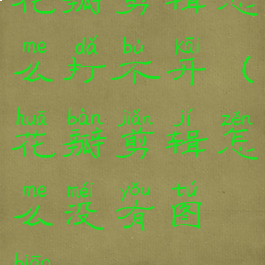 花瓣剪辑怎
me dǎ bù kāi
么打不开（
huā bàn jiǎn jí zěn
花瓣剪辑怎
me méi yǒu tú
么没有图